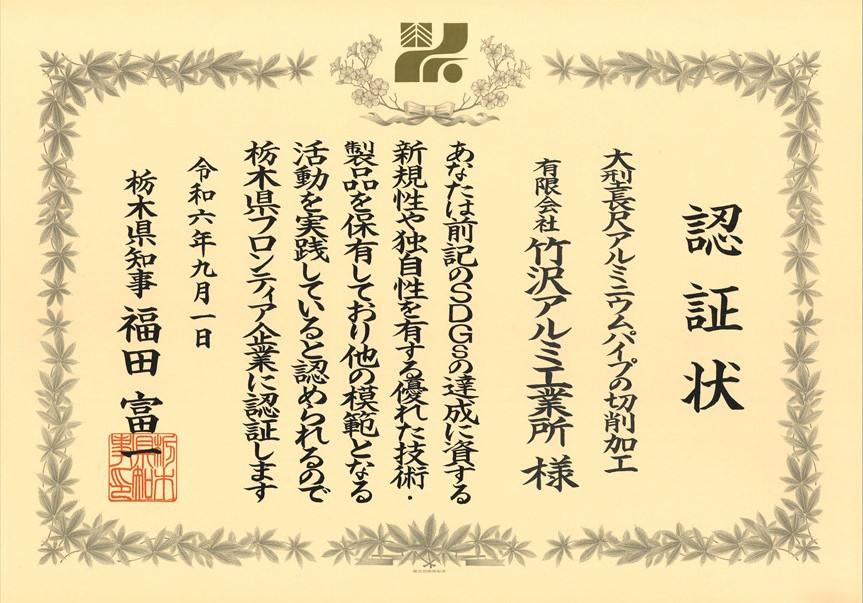 認証状
大型長尺アルミニウムパイプの切削加工
有限会社 竹沢アルミ工業所 様
あなたは前記のSDGsの達成に資する
新規性や独自性を有する優れた技術・
製品を保有しており他の模範となる
活動を実践していると認められるので
栃木県フロンティア企業に認証します
令和六年九月一日
栃木県知事 福田富一